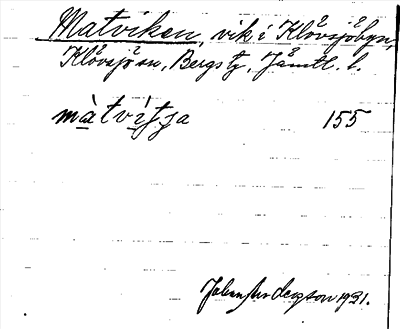 Matviken, vik i Klövsjöbyn,
Klövsjö sn, Bergs tg, Jämtl. l.
màtvìt̯ja 155
Johan Anderzson 1931.